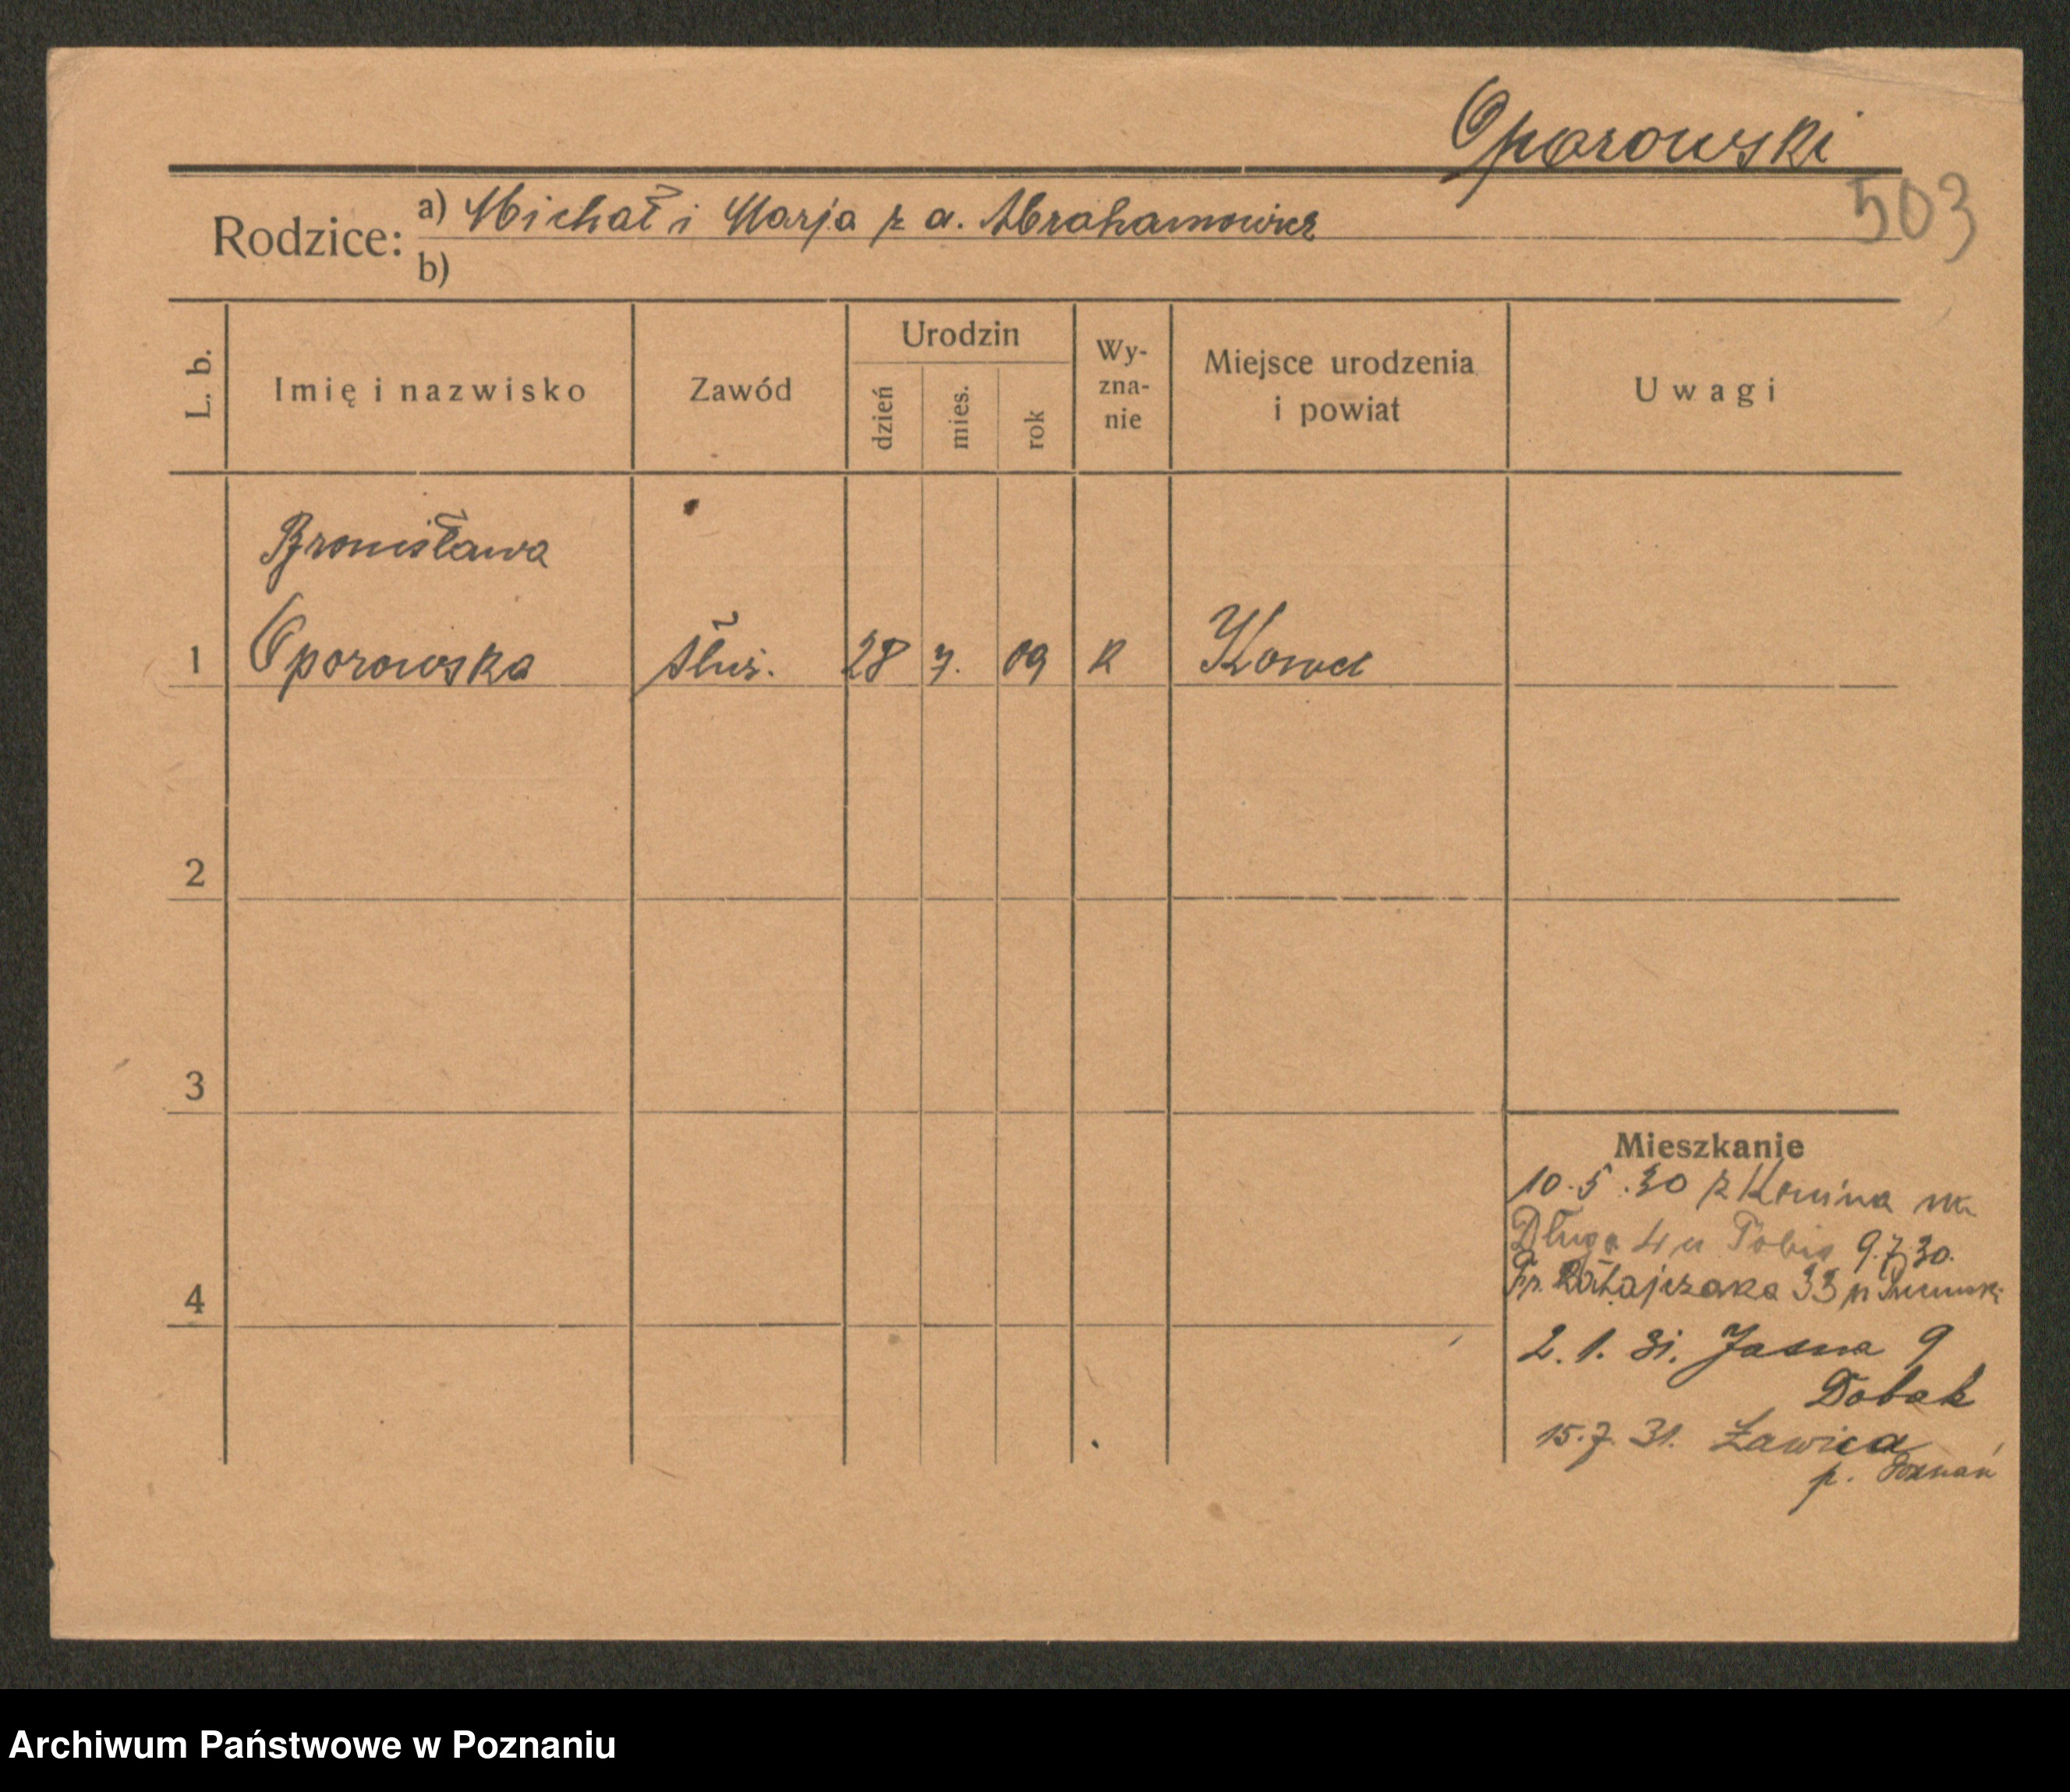 Oporowski
503
Rodzice: a) Michał i Marja z d. Abrahamowicz
b)
L. b. Imię i nazwisko Zawód Urodzin dzień mies. rok Wyznanie Miejsce urodzenia i powiat Uwagi
Bronisława
1 Oporowska służ. 28 7. 09 k
2
3
Mieszkanie
10.5.30 z Konina na
Długa 4 u 9.7.30.
4 Fr. Ratajczaka 33
2.1.31. Jasna 9
Dobak
15.7.31. Ławica
p. Poznań
Archiwum Państwowe w Poznaniu